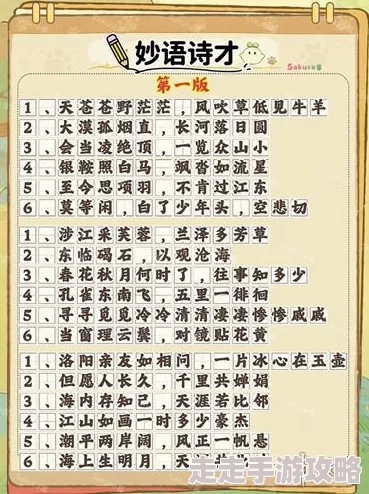 妙语诗才
Sakura蜜
第一版
1、天苍苍野茫茫，风吹草低见牛羊
2、大漠孤烟直，长河落日圆
3、会当凌绝顶，一览众山小
4、银鞍照白马，飒沓如流星
5、至今思项羽，不肯过江东
6、莫等闲，白了少年头，空悲切
1、涉江采芙蓉，兰泽多芳草
2、东临碣石，以观沧海
3、春花秋月何时了，往事知多少
4、孔雀东南飞，五里一徘徊
5、寻寻觅觅冷冷清清凄凄惨惨戚戚
6、当窗理云鬓，对镜贴花黄
1、洛阳亲友如相问，一片冰心在玉壶
2、但愿人长久，千里共婵娟
3、海内存知己，天涯若比邻
4、江山如画一时多少豪杰
5、潮平两岸阔，风正一帆悬
6、海上生明月，天
走走手游攻略